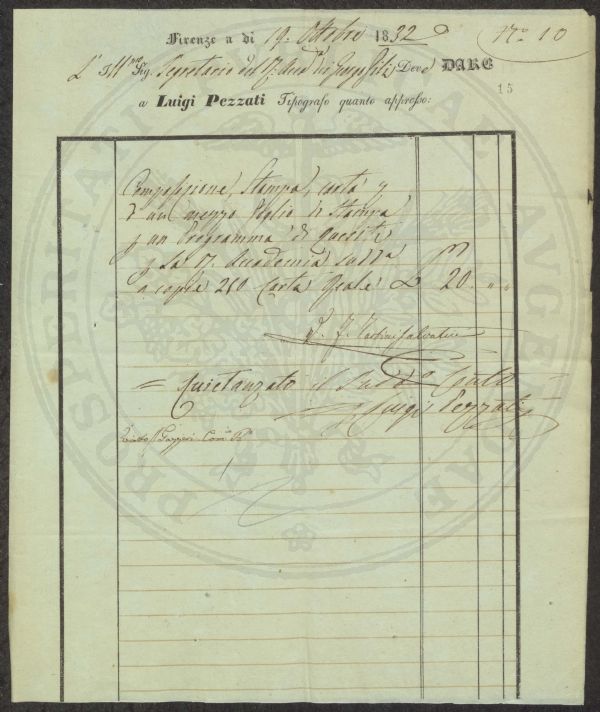 Firenze a dì 19. Ottobre 1832
N.º 10
L' Ill.mo Sig. Segretario dell' I. Accad. dei Georgofili Deve DARE
15
a Luigi Pezzati Tipografo quanto appresso:
Composizione, Stampa, carta
d' un mezzo foglio di Stampa
p un Programma di Quesiti
p la I. Accademia sudd.a
a copie 260 Carta Reale £ 20. " "
Tartini Salvatici
= Quietanzato il Sud.o Conto
Luigi Pezzati
Visto Gazzeri
PROSPERITATI AUGENDAE